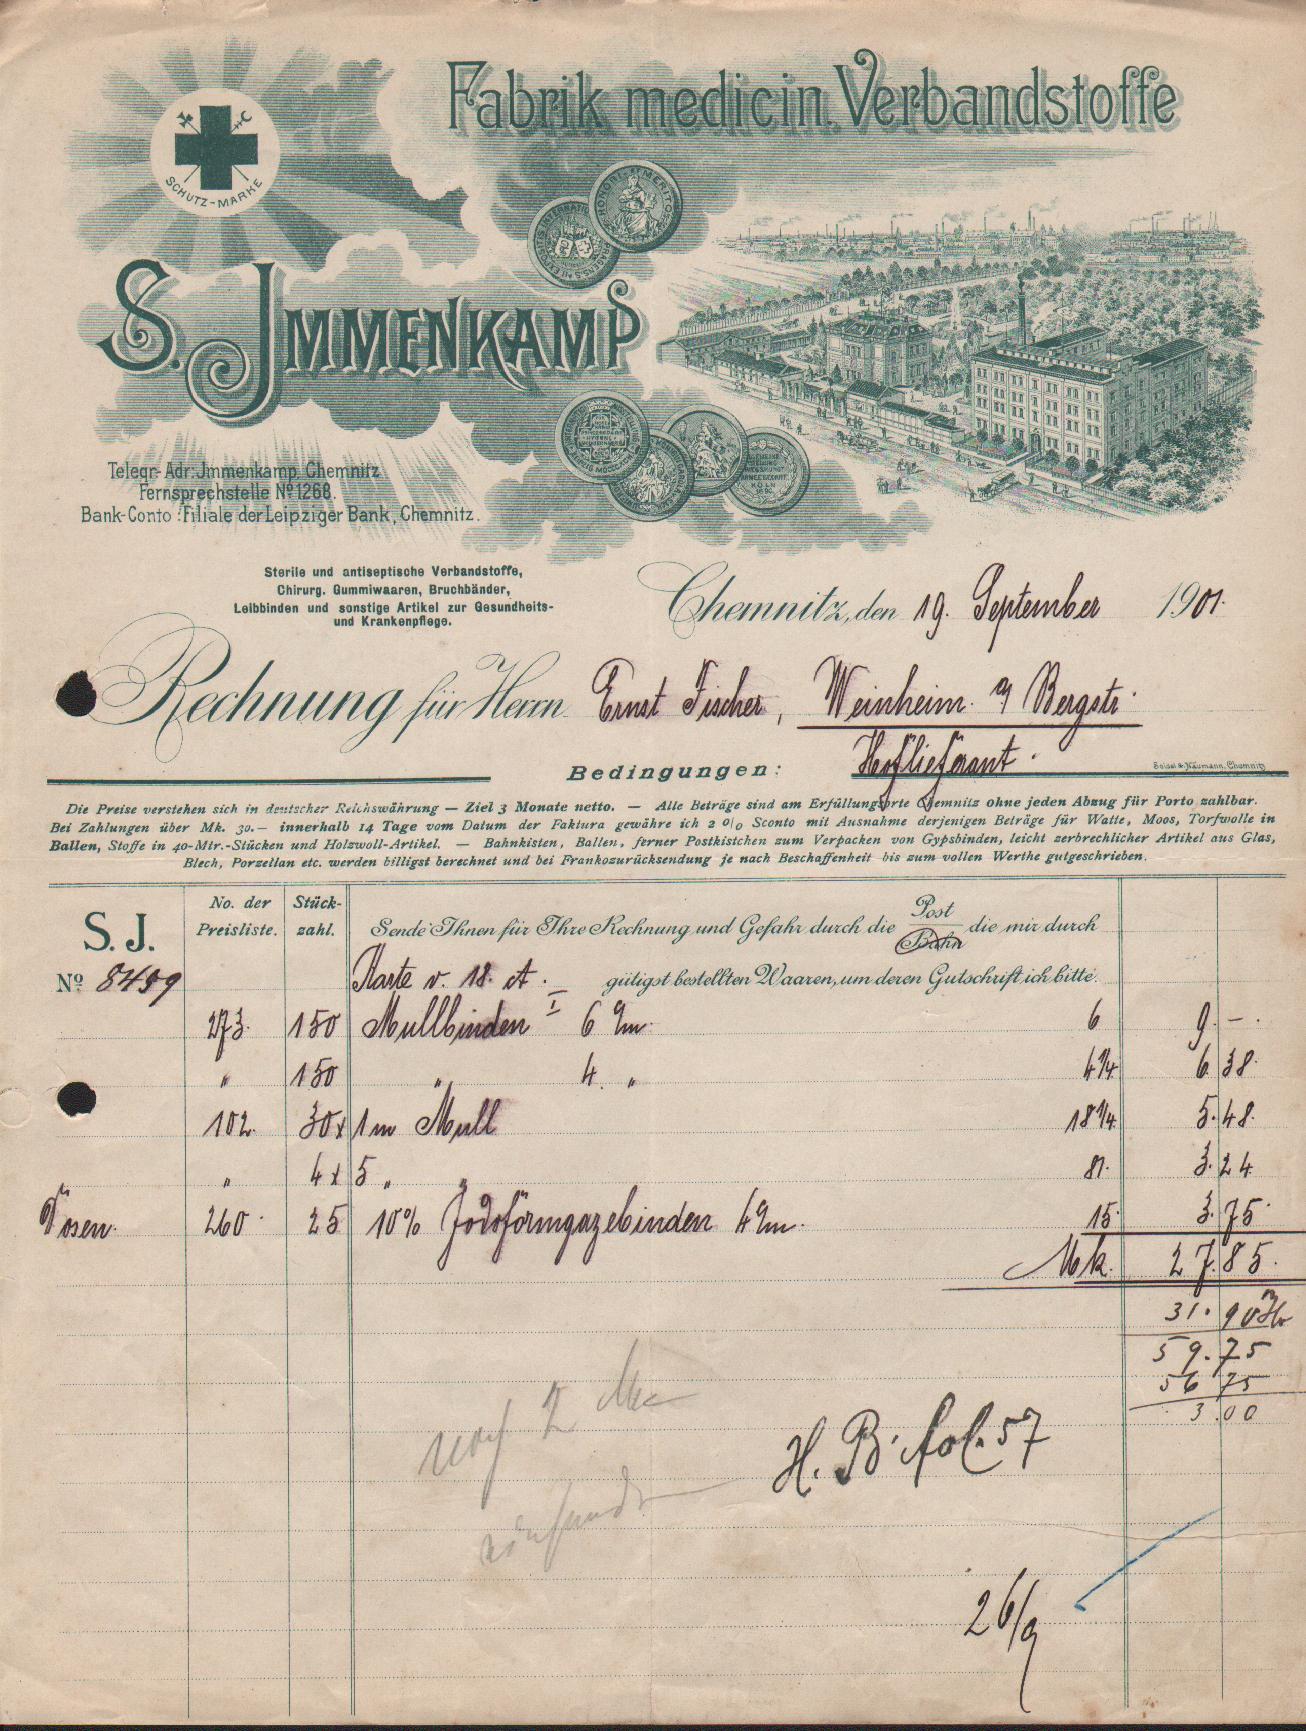 Fabrik medicin. Verbandstoffe
SCHUTZ-MARKE
HONORI ET MERITO
S. JMMENKAMP
KÖLN
Telegr.-Adr: Jmmenkamp, Chemnitz
Fernsprechstelle No 1268.
Bank-Conto: Filiale der Leipziger Bank, Chemnitz.
Sterile und antiseptische Verbandstoffe,
Chirurg. Gummiwaaren, Bruchbänder,
Leibbinden und sonstige Artikel zur Gesundheits-
und Krankenpflege.
Chemnitz, den 19. September 1901.
Rechnung für Herrn Ernst Fischer, Weinheim a/ Bergstr.
Hoflieferant.
Bedingungen:
Seidel & Naumann, Chemnitz
Die Preise verstehen sich in deutscher Reichswährung — Ziel 3 Monate netto. — Alle Beträge sind am Erfüllungsorte Chemnitz ohne jeden Abzug für Porto zahlbar.
Bei Zahlungen über Mk. 30.— innerhalb 14 Tage vom Datum der Faktura gewähre ich 2 0/0 Sconto mit Ausnahme derjenigen Beträge für Watte, Moos, Torfwolle in
Ballen, Stoffe in 40-Mtr.-Stücken und Holzwoll-Artikel. — Bahnkisten, Ballen, ferner Postkistchen zum Verpacken von Gypsbinden, leicht zerbrechlicher Artikel aus Glas,
Blech, Porzellan etc. werden billigst berechnet und bei Frankozurücksendung je nach Beschaffenheit bis zum vollen Werthe gutgeschrieben.
S. J. No. der Preisliste. Stück-zahl. Sende Ihnen für Ihre Rechnung und Gefahr durch die Post Bahn die mir durch
No 8459 Karte v. 18. ct. gütigst bestellten Waaren, um deren Gutschrift ich bitte.
273. 150 Mullbinden I 6 cm. 6 9. – .
" 150 " 4 " 4 1/4 6 38.
102. 30 x 1 m Mull 18 1/4 5. 48.
" 4 x 5 " " 81. 3. 24
Dosen. 260. 25 10% Jodoformgazebinden 4 cm. 15. 3. 75.
Mk. 27. 85.
31. 90
59. 75
56 75
3.00
H. B. fol. 57
26/9